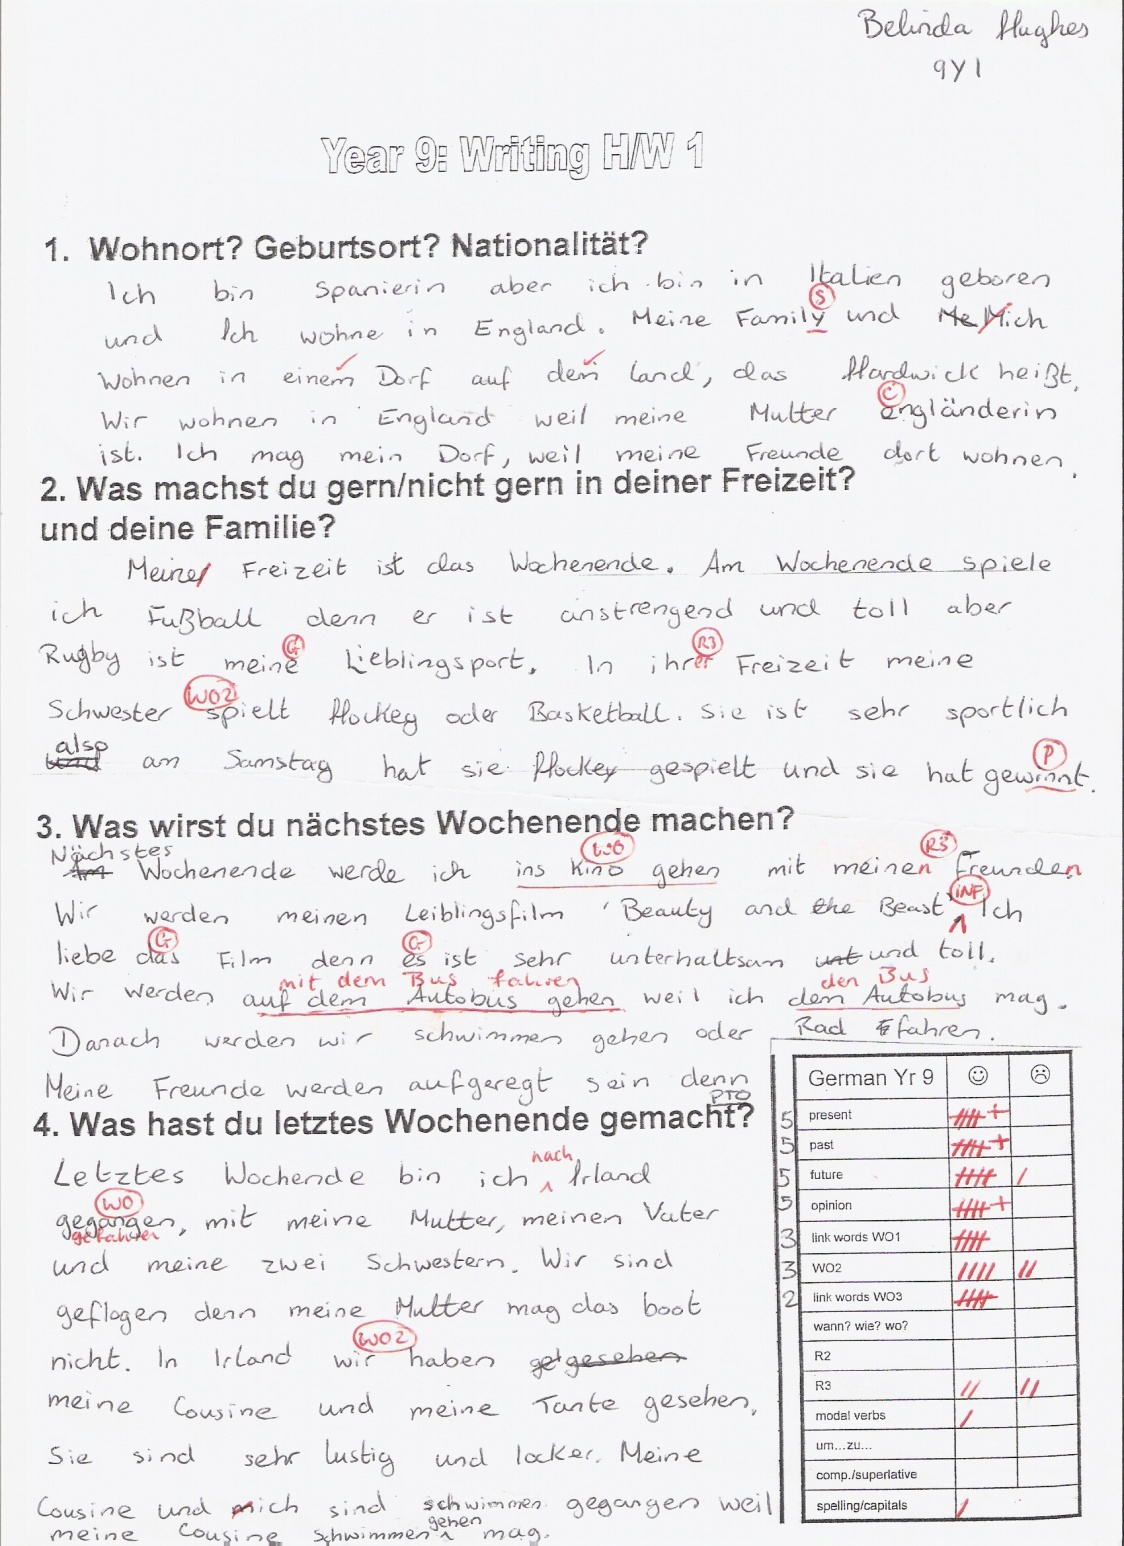 Belinda Hughes
9Y1
Year 9: Writing H/W 1
1. Wohnort? Geburtsort? Nationalität?
Ich bin Spanierin aber ich bin in Italien geboren
S
und Ich wohne in England. Meine Family und Me Mich
wohnen in einem Dorf auf dem Land, das Hardwick heißt.
C
Wir wohnen in England weil meine Mutter engländerin
ist. Ich mag mein Dorf, weil meine Freunde dort wohnen.
2. Was machst du gern/nicht gern in deiner Freizeit?
und deine Familie?
Meine Freizeit ist das Wochenende. Am Wochenende spiele
ich Fußball denn er ist anstrengend und toll aber
G R3
Rugby ist meine Lieblingsport. In ihrer Freizeit meine
WO2
Schwester spielt Hockey oder Basketball. Sie ist sehr sportlich
also
und am Samstag hat sie Hockey gespielt und sie hat gewinnt.
P
3. Was wirst du nächstes Wochenende machen?
Nächstes
Am Wochenende werde ich ins Kino gehen mit meinen Freunden
WO R3
Wir werden meinen Leiblingsfilm 'Beauty and the Beast' Ich
INF
G G
liebe das Film denn es ist sehr unterhaltsam unt und toll.
mit dem Bus fahren den Bus
Wir werden auf dem Autobus gehen weil ich dem Autobus mag.
Danach werden wir schwimmen gehen oder Rad fahren.
Meine Freunde werden aufgeregt sein denn
PTO
4. Was hast du letztes Wochenende gemacht?
nach
Letztes Wochende bin ich Irland
WO
gegangen, mit meine Mutter, meinen Vater
gefahren
und meine zwei Schwestern. Wir sind
geflogen denn meine Mutter mag das boot
WO2
nicht. In Irland wir haben gesehen
meine Cousine und meine Tante gesehen.
Sie sind sehr lustig und locker. Meine
Cousine und mich sind schwimmen gegangen weil
gehen
meine Cousine schwimmen mag.
German Yr 9 ☺ ☹
5 present
5 past
5 future
5 opinion
3 link words WO1
3 WO2
2 link words WO3
wann? wie? wo?
R2
R3
modal verbs
um...zu...
comp./superlative
spelling/capitals